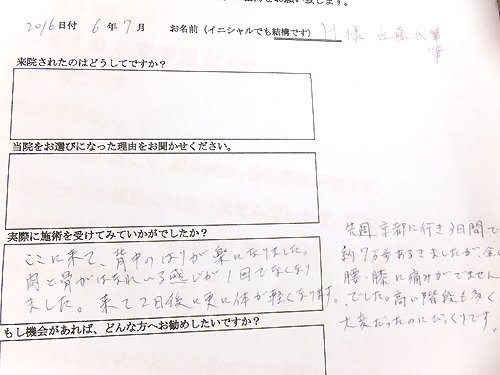 お願い致します。
2016日付 6年7月 お名前(イニシャルでも結構です) H 様 近藤代筆
筆
来院されたのはどうしてですか?
当院をお選びになった理由をお聞かせください。
実際に施術を受けてみていかがでしたか?
ここに来て、背中のはりが楽になりました。
肉と骨がはなれいる感じが1回でなくなり
ました。来て2日後に更に体が軽くなります。
先週、京都に行き3日間で
約7万歩あるきましたが全く
腰・膝に痛みがでません
でした。高い階段も多く
大変だったのにびっくりです。
もし機会があれば、どんな方へお勧めしたいですか?